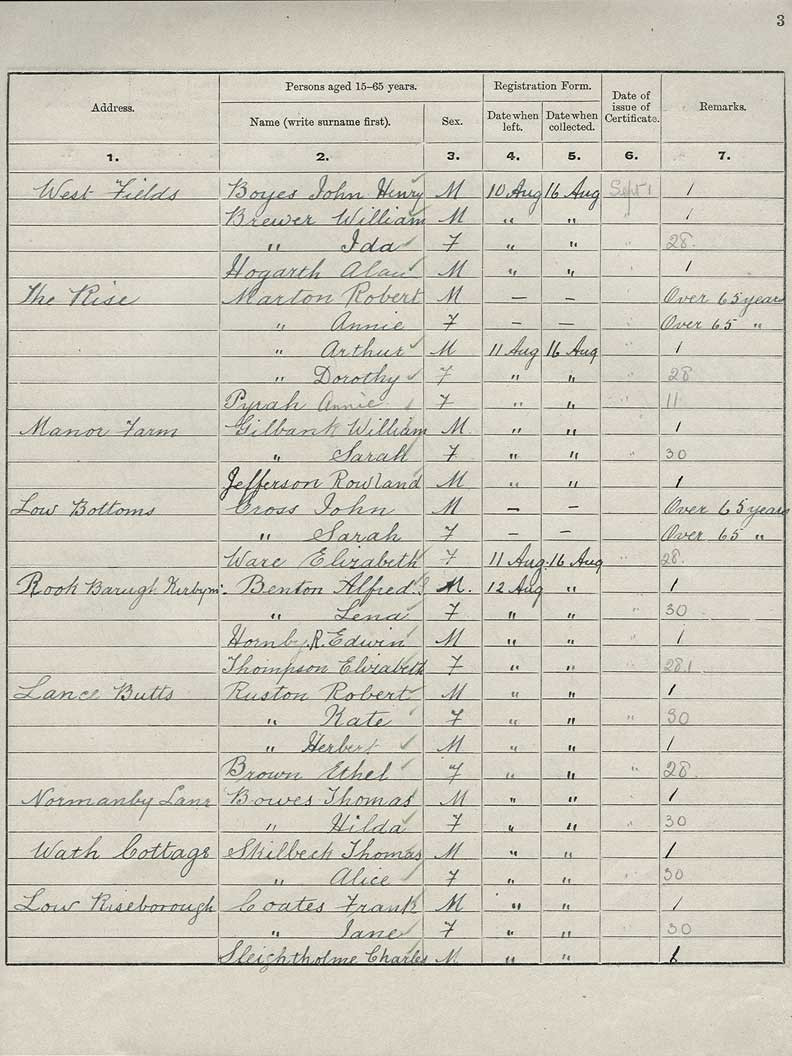 3
Address. Persons aged 15–65 years. Registration Form. Date of issue of Certificate. Remarks.
Name (write surname first). Sex. Date when left. Date when collected.
1. 2. 3. 4. 5. 6. 7.
West Fields Boyes John Henry M 10 Aug 16 Aug Sept 1 1
Brewer William M " " " 1
" Ida F " " " 28.
Hogarth Alan M " " " 1
The Rise Marton Robert M — — Over 65 years
" Annie F — — " Over 65 "
" Arthur M 11 Aug 16 Aug " 1
" Dorothy F " " " 28
Pyrah Annie F " " " 11
Manor Farm Gilbank William M " " 1
" Sarah F " " " 30
Jefferson Rowland M " " 1
Low Bottoms Cross John M — — Over 65 years
" Sarah F — — Over 65 "
Ware Elizabeth F 11 Aug. 16 Aug " 28.
Rook Barugh Kirbym: Benton Alfred M. 12 Aug " 1
" Lena F " " " 30
Hornby. R. Edwin M " " " 1
Thompson Elizabeth F " " " 28.1
Lance Butts Ruston Robert M " " 1
" Kate F " " " 30
" Herbert M " " 1
Brown Ethel F " " " 28.
Normanby Lane Bowes Thomas M " " 1
" Hilda F " " 30
Wath Cottage Skilbeck Thomas M " " 1
" Alice F " " 30
Low Riseborough Coates Frank M " " 1
" Jane F " " 30
Sleightholme Charles M " "